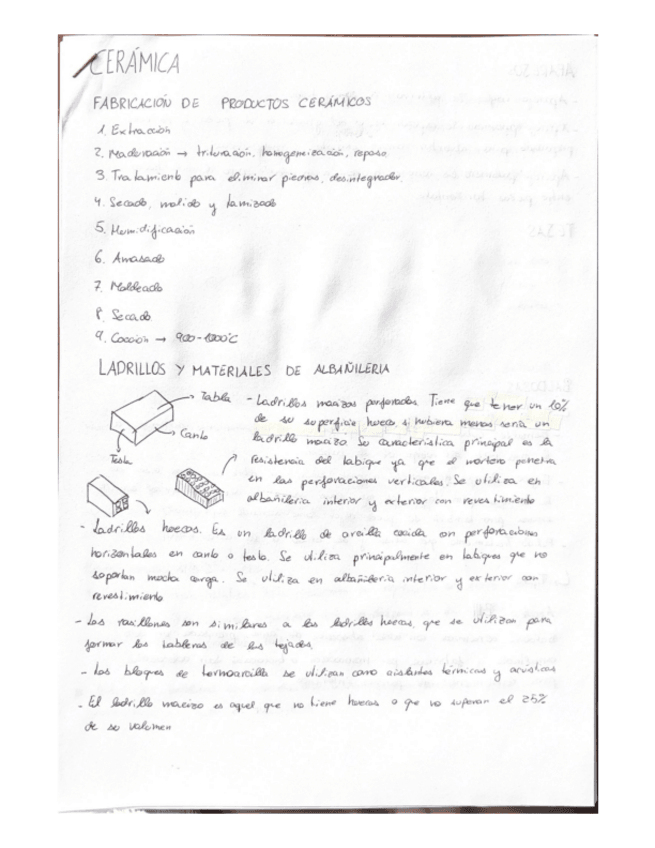 CERÁMICA
FABRICACIÓN DE PRODUCTOS CERÁMICOS
1. Extracción
2. Maduración → trituración, homogeneización, reposo
3. Tratamiento para eliminar piedras, desintegrador
4. Secado, molido y tamizado
5. Humidificación
6. Amasado
7. Moldeado
8. Secado
9. Cocción → 900-1000°C
LADRILLOS Y MATERIALES DE ALBAÑILERIA
Tabla
Canto
Testa
- Ladrillos macizos perforados. Tiene que tener un 10%
de su superficie hueca, si hubiera menos sería un
ladrillo macizo. Su característica principal es la
resistencia del tabique ya que el mortero penetra
en las perforaciones verticales. Se utiliza en
albañileria interior y exterior con revestimiento
- Ladrillos huecos. Es un ladrillo de arcilla cocida con perforaciones
horizontales en canto o testa. Se utiliza principalmente en tabiques que no
soportan mucha carga. Se utiliza en albañileria interior y exterior con
revestimiento
- Los rasillones son similares a los ladrillos huecos, que se utilizan para
formar los tableros de los tejados.
- Los bloques de termoarcilla se utilizan como aislantes térmicos y acústicos
- El ladrillo macizo es aquel que no tiene huecos o que no superan el 25%
de su volumen